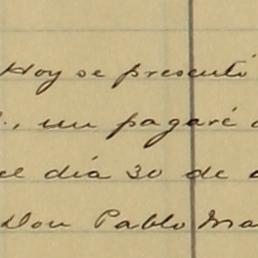 Hoy se presentó
un pagaré
el día 30 de
Don Pablo Ma